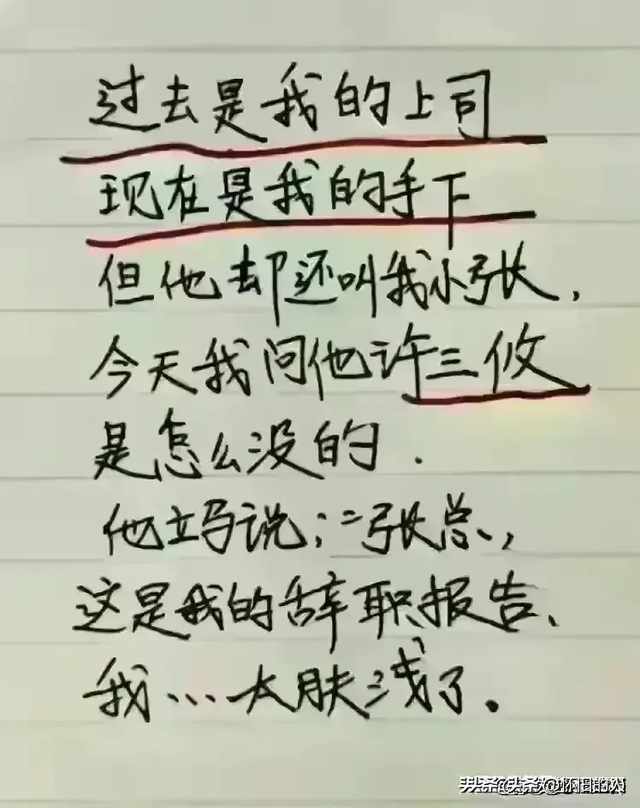 过去是我的上司
现在是我的手下
但他却还叫我小张,
今天我问他许三攸
是怎么没的.
他立马说:"张总,
这是我的辞职报告、
我…太肤浅了。